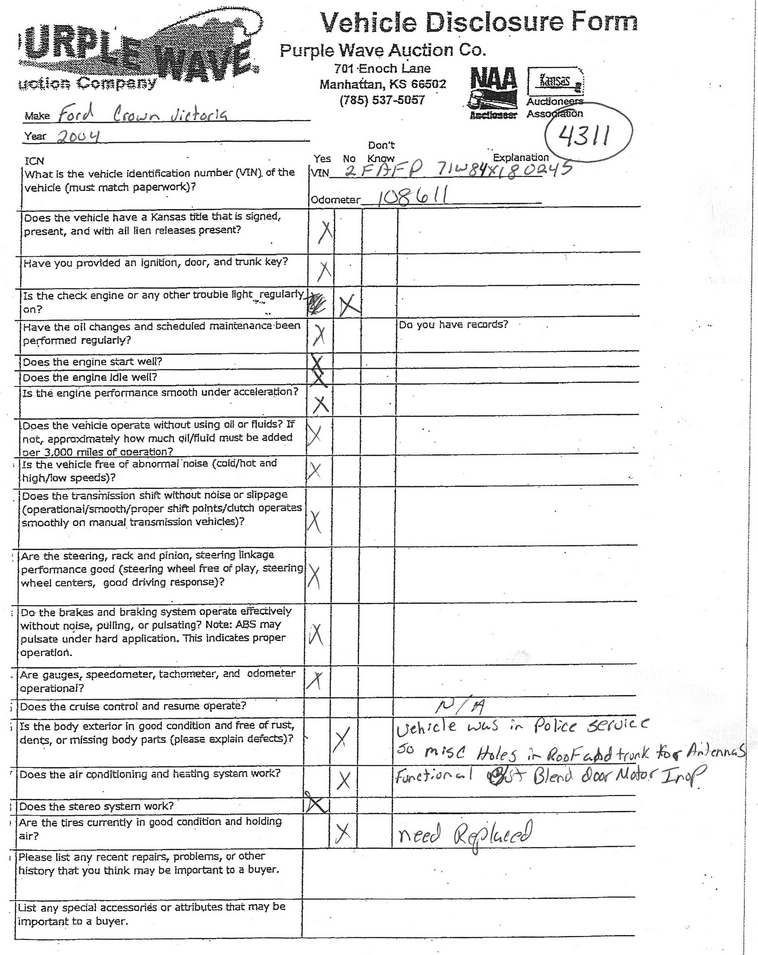 PURPLE WAVE
uction Company
Vehicle Disclosure Form
Purple Wave Auction Co.
701 Enoch Lane
Manhattan, KS 66502
(785) 537-5057
NAA
Auctioneer
Kansas
Auctioneers
Association
4311
Make Ford Crown Victoria
Year 2004
ICN
Yes No Don't Know Explanation
What is the vehicle identification number (VIN) of the
vehicle (must match paperwork)?
VIN 2FAFP 71W84X180245
Odometer 108611
Does the vehicle have a Kansas title that is signed,
present, and with all lien releases present?
X
Have you provided an ignition, door, and trunk key?
X
Is the check engine or any other trouble light regularly
on?
X
Have the oil changes and scheduled maintenance been
performed regularly?
X
Do you have records?
Does the engine start well?
X
Does the engine idle well?
X
Is the engine performance smooth under acceleration?
X
Does the vehicle operate without using oil or fluids? If
not, approximately how much oil/fluid must be added
per 3,000 miles of operation?
X
Is the vehicle free of abnormal noise (cold/hot and
high/low speeds)?
X
Does the transmission shift without noise or slippage
(operational/smooth/proper shift points/clutch operates
smoothly on manual transmission vehicles)?
X
Are the steering, rack and pinion, steering linkage
performance good (steering wheel free of play, steering
wheel centers, good driving response)?
X
Do the brakes and braking system operate effectively
without noise, pulling, or pulsating? Note: ABS may
pulsate under hard application. This indicates proper
operation.
X
Are gauges, speedometer, tachometer, and odometer
operational?
X
Does the cruise control and resume operate?
N/A
Is the body exterior in good condition and free of rust,
dents, or missing body parts (please explain defects)?
X
Vehicle was in Police service
so misc Holes in Roof and trunk for Antennas
Does the air conditioning and heating system work?
X
Functional But Blend door Motor Inop
Does the stereo system work?
X
Are the tires currently in good condition and holding
air?
X
need Replaced
Please list any recent repairs, problems, or other
history that you think may be important to a buyer.
List any special accessories or attributes that may be
important to a buyer.